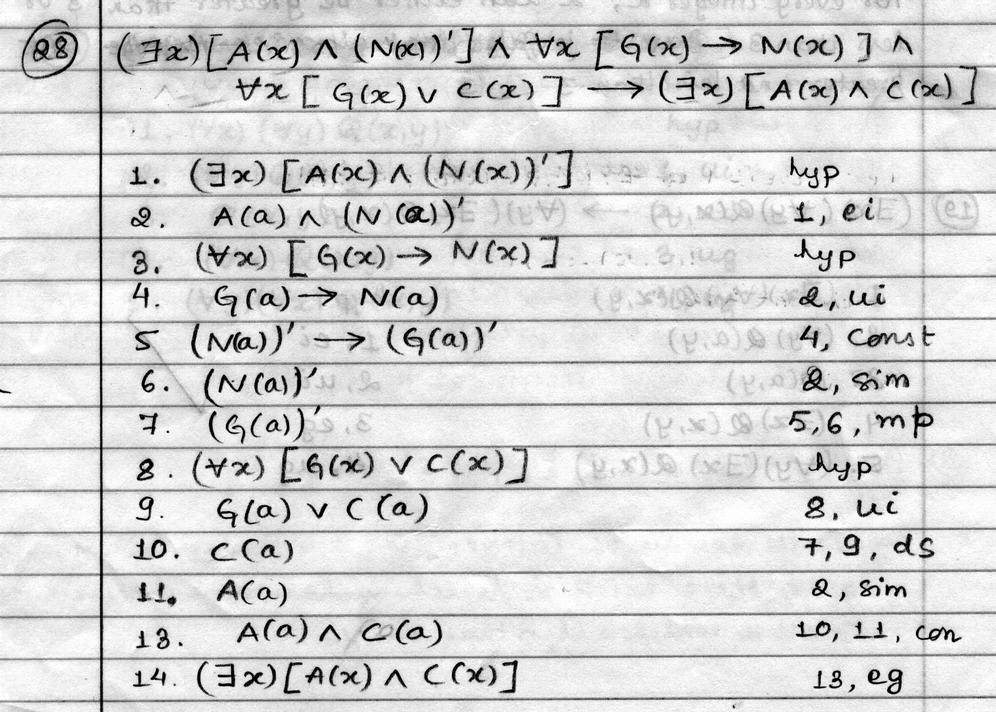 28 (∃x)[A(x) ∧ (N(x))'] ∧ ∀x [G(x) → N(x)] ∧
∀x [G(x) ∨ C(x)] → (∃x)[A(x) ∧ C(x)]
1. (∃x) [A(x) ∧ (N(x))'] hyp
2. A(a) ∧ (N(a))' 1, ei
3. (∀x) [G(x) → N(x)] hyp
4. G(a) → N(a) 2, ui
5 (N(a))' → (G(a))' 4, Const
6. (N(a))' 2, sim
7. (G(a))' 5,6, mp
8. (∀x) [G(x) ∨ C(x)] hyp
9. G(a) ∨ C(a) 8, ui
10. C(a) 7, 9, ds
11. A(a) 2, sim
13. A(a) ∧ C(a) 10, 11, con
14. (∃x)[A(x) ∧ C(x)] 13, eg